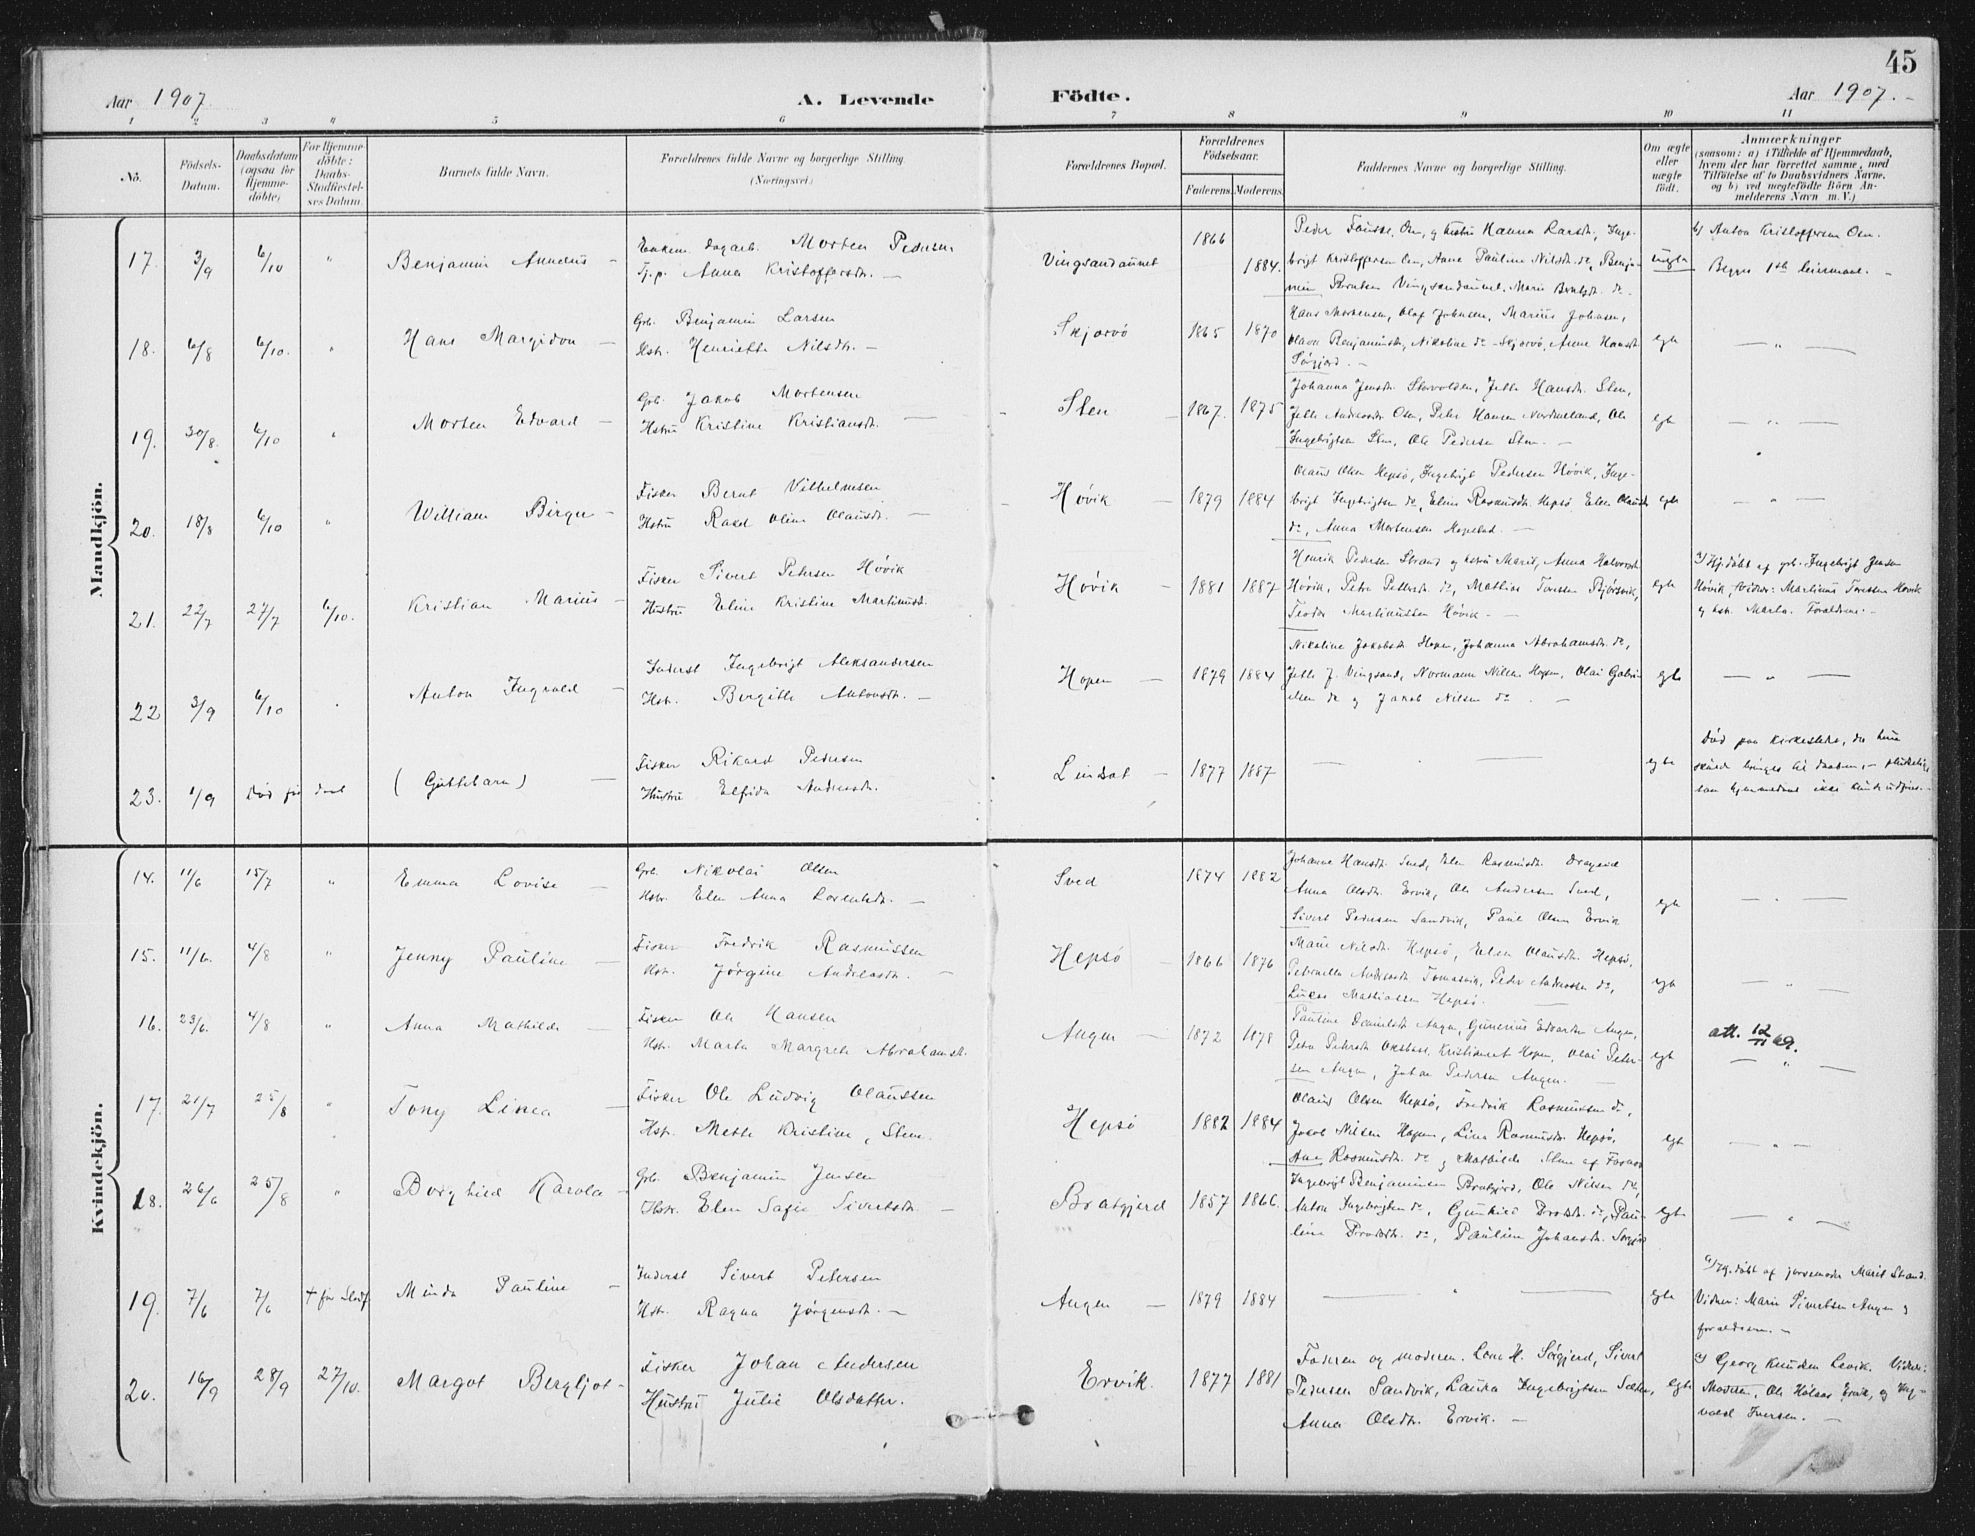 45
Aar 1907. A. Levende Födte. Aar 1907.
1 2 3 4 5 6 7 8 9 10 11
No. Födsels-Datum. Daabsdatum (ogsaa for Hjemme-döbte) For Hjemme-döbte: Daabs-Stadfæstel-ses Datum. Barnets fulde Navn. Forældrenes fulde Navne og borgerlige Stilling. (Næringsvei.) Forældrenes Bopæl. Forældrenes Födselsaar. Faderens. Moderens. Faddernes Navne og borgerlige Stilling. Om ægte eller uægte födt. Anmærkninger
(saasom: a) i Tilfælde af Hjemmedaab,
hvem der har forrettet samme, med
Tilföielse af to Daabsvidners Navne.
og b) ved uægtefödte Börn An-
melderens Navn m. V.)
Mandkjön.
17. 3/9 6/10 " Benjamin Anneus
Enkem. dagarb. Morten Pedersen
Tj.p. Anna Kristoffersdr. —
Vingsandaunet 1866 1884.
Peder Fouske, Osen, og hustru Hanna Larsdr, Inge-
brigt Kristoffersen Osen, Anne Pauline Nilsdr. do, Benja-
min Berntsen Vingsandaunet, Marie Berntsdr. do.
uægte
b) Anton Kristoffersen Osen.
Begges 1ste leiermaal. —
18. 6/8 6/10. " Hans Margidon —
Grb. Benjamin Larsen
Hstr. Henriette Nilsdtr. —
Skjærvö 1865 1870
Hans Mortensen, Olaf Johnsen, Marius Johnsen,
Olava Benjaminsdr, Nikoline do - Skjervö, Anne Hansdr.
Sörgjerd. —
egte — " —
19. 30/8. 6/10 " Morten Edvard —
Grb. Jakob Mortensen
Hstru Kristine Kristiansdr. —
Sten 1867. 1875
Johanna Jensdr. Storvolden, Jette Hansdr. Sten,
Jette Andersdr Osen, Peter Hansen Nordmeland, Ole
Ingebrigtsen Sten, Ole Pedersen Sten. —
egte — " —
20. 18/8 6/10 " William Birger —
Fisker Bernt Vilhelmsen
Hstru Rakel Oline Olausdr. —
Hövik 1879 1884
Olaus Olsen Hepsö, Ingebrigt Pedersen Hövik, Inge-
brigt Ingebrigtsen do, Eline Rasmusdr. Hepsö, Elen Olausdr
do, Anna Mortensen Hopstad. —
egte — " —
21. 22/7 27/7 6/10. Kristian Marius —
Fisker Sivert Petersen Hövik
Hustru Eline Kristine Martinusd.
Hövik — 1881 1887
Henrik Pedersen Strand og hustru Marit, Anna Halvorsdr
Hövik, Petra Pettersdr. do, Mathias Torsen Björsvik,
Teodor Martinussen Hövik. —
egte
a) Hj.döbt af grb. Ingebrigt Jensen
Hövik, Vidner: Martinus Toressen Hövik
og hstr. Marta. Foraldrene. —
22 3/9 6/10 Anton Ingvald —
Inderst Ingebrigt Aleksandersen
Hstr. Bergitte Antonsdr. —
Hopen — 1879 1884
Nikoline Jakobsdr Hopen, Johanna Abrahamsdr. do,
Jette J. Vingsand, Normann Nilsen Hopen, Olai Gabri-
elsen do og Jakob Nilsen do. —
egte — " —
23. 1/9 Död för daab ( Guttebarn ) —
Fisker Rikard Pedersen
Hustru Elfrida Andersdr.
Lindsat — 1877 1887
— " —
egte
Död paa kirkestedet, da bl.a.
skulde bringes til daaben, — pludselig,
saa hjemmedaab ikke kunde udföres. —
Kvindekjön.
14. 11/6 15/7 " Emma Lovise —
Grb. Nikolai Olsen
Hstr. Elen Anna Lorentsdr. —
Sved 1874 1882
Johanne Hansdr. Sved, Elen Rasmusdr. Drageid
Anna Olsdr. Ervik, Ole Andersen Sved,
Sivert Pedersen Sandvik, Paul Olsen Ervik
egte — " —
15. 11/6. 4/8 " Jenny Pauline —
Fisker Fredrik Rasmussen
Hstr. Jörgine Andreasdr. —
Hepsö — 1866 1876
Marie Nilsdr. Hepsö, Elen Olausdr. Hepsö,
Petronelle Andreasdr Tomasvik, Peder Andreassen do,
Lukas Mathiassen Hepsö. —
egte — " —
16. 23/6. 4/8 " Anna Mathilde —
Fisker Ole Hansen
Hstr. Marta Margrete Abrahamsdr.
Angen — 1872 1878
Pauline Danielsdr. Angen, Gunerius Edvardsen Angen,
Petra Petersdr. Oksbasl, Kristianet Hopen, Olai Peter-
sen Angen, Johan Pedersen Angen. —
egte
att. 12/11 69.
— " —
17. 21/7 25/8 " Tony Linea —
Fisker Ole Ludvig Olaussen
Hstr. Mette Kristine, Stene.
Hepsö 1882 1884
Olaus Olsen Hepsö, Fredrik Rasmussen do,
Jakob Nilsen Hopen, Lina Rasmusdr. Hepsö,
Ane Rasmusdr. do og Mathilde Stene af Fosnes
egte — " —
18. 26/6 25/8 " Borghild Karola —
Grb. Benjamin Jensen
Hstr. Elen Sofie Sivertsdr. —
Bratgjerd 1857 1866.
Ingebrigt Benjaminsen Bratgjerd, Ole Nilsen do,
Anton Ingebrigtsen do, Gunhild Brodtr. do, Pau-
line Brodtr. do, Pauline Johansdr. Sörgjerd
egte — " —
19. 7/6 7/6 + för Stadf. Minda Pauline —
Inderst Sivert Petersen
Hstr. Ragna Jörgensdr. —
Angen — 1879 1884
— " —
egte
a) Hj.döbt af jordemoder Marit Strand.
Vidner: Marie Sivertsen Angen og
forældrene. —
20. 16/9 28/9 27/10. Margot Bergljot —
Fisker Johan Andersen
Hustru Julie Olsdatter.
Ervik. 1877 1881
Faderen og moderen. Lene M. Sörgjerd, Sivert
Pedersen Sandvik, Laura Ingebrigtsen Sætern,
Anna Olsdtr. Ervik. —
egte
a) Georg Knudsen Levik. Vidner:
Moderen, Ole Hölaas Ervik, og Ing-
vald Iversen. —